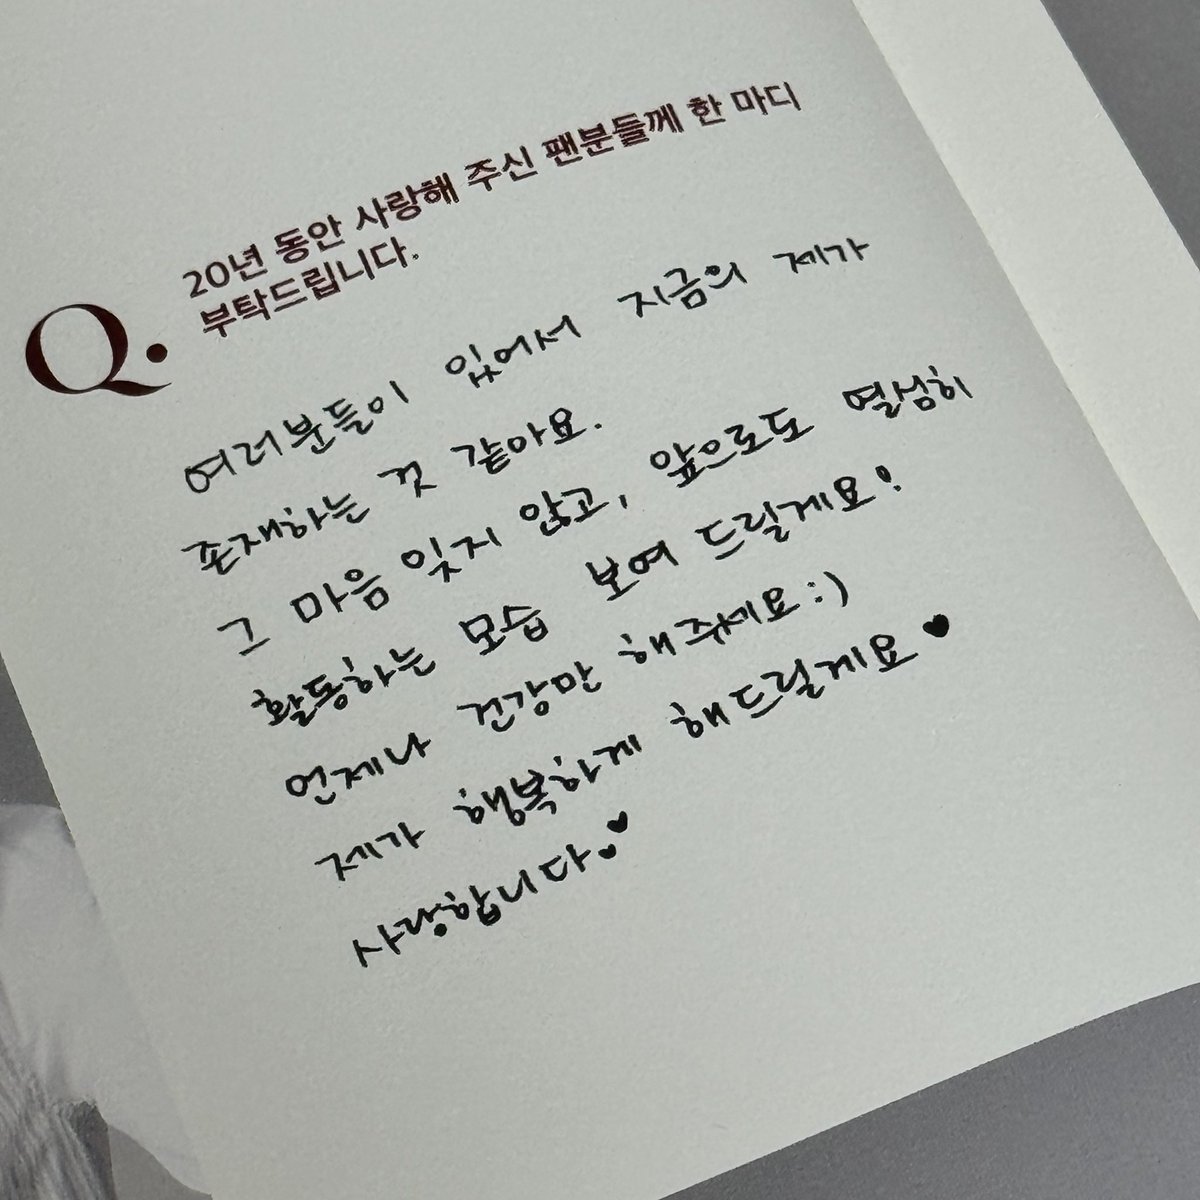 Q.
20년 동안 사랑해 주신 팬분들께 한 마디
부탁드립니다.
여러분들이 있어서 지금의 제가
존재하는 것 같아요.
그 마음 잊지 않고, 앞으로도 열심히
활동하는 모습 보여 드릴게요!
언제나 건강만 해주세요:)
제가 행복하게 해드릴게요♥
사랑합니다♥♥